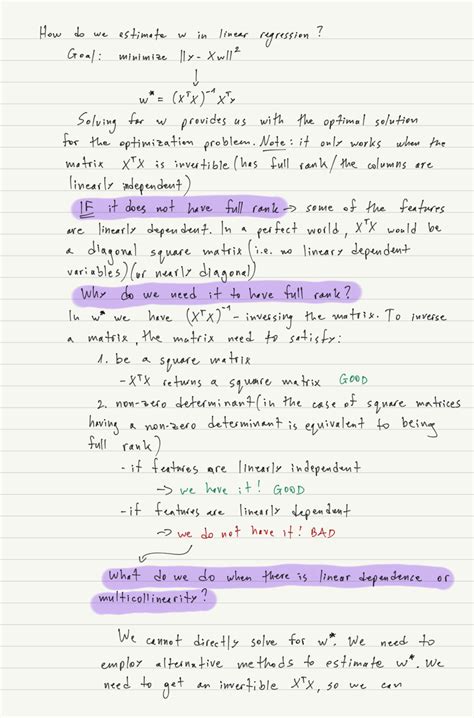 How do we estimate w in linear regression?
Goal: minimize ||y - Xw||²
↓
w* = (XᵀX)⁻¹ Xᵀy
Solving for w provides us with the optimal solution
for the optimization problem. Note: it only works when the
matrix XᵀX is invertible (has full rank / the columns are
linearly independent)
IF it does not have full rank → some of the features
are linearly dependent. In a perfect world, XᵀX would be
a diagonal square matrix (i.e. no lineary dependent
variables) (or nearly diagonal)
Why do we need it to have full rank?
In w* we have (XᵀX)⁻¹ - inversing the matrix. To inverse
a matrix, the matrix need to satisfy:
1. be a square matrix
- XᵀX returns a square matrix GOOD
2. non-zero determinant (in the case of square matrices
having a non-zero determinant is equivalent to being
full rank)
- if features are linearly independent
→ we have it! GOOD
- if features are linearly dependent
→ we do not have it! BAD
What do we do when there is linear dependence or
multicollinearity?
We cannot directly solve for w*. We need to
employ alternative methods to estimate w*. We
need to get an invertible XᵀX, so we can